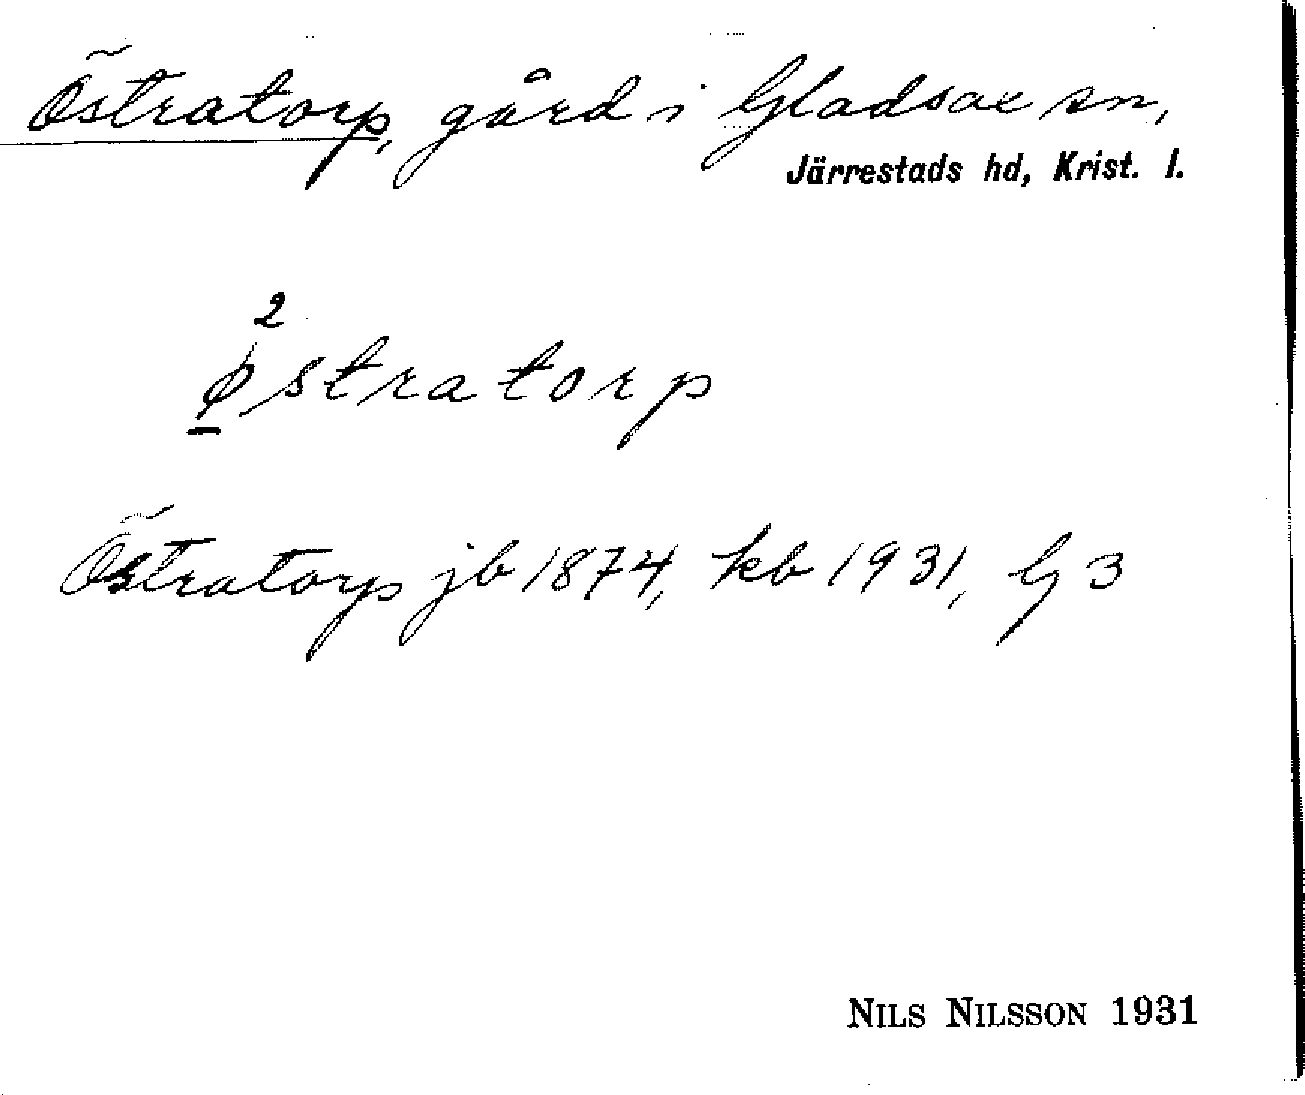 Östratorp, gård i Gladsax sn,
Järrestads hd, Krist. l.
2
ø̱stratorp
Östratorp jb 1874, kb 1931, G 3
NILS NILSSON 1931